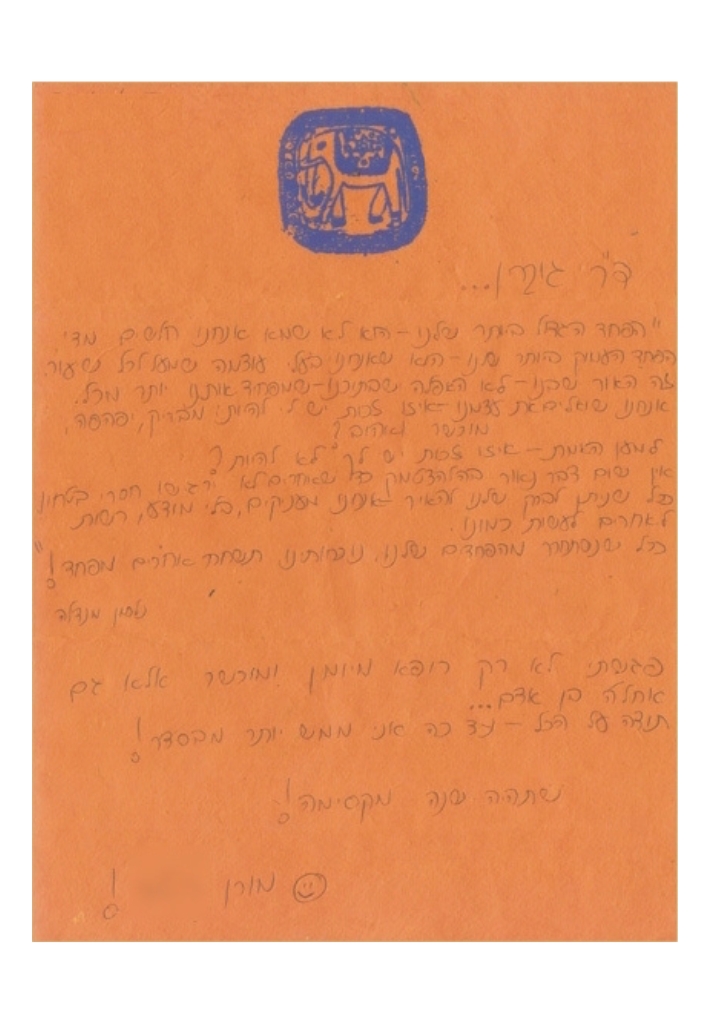 ד"ר גולדן...
"הפחד הגדול ביותר שלנו – הוא לא שמא אנחנו חלשים מדי
הפחד העמוק ביותר שלנו – הוא שאנחנו בעלי עוצמה שמעל לכל שיעור.
זה האור שבנו – לא האפלה שבתוכנו – שמפחיד אותנו יותר מכל.
אנחנו שואלים את עצמנו – איזו זכות יש לי להיות מבריק, יפהפה,
מוכשר ואהוב?
למען האמת – איזו זכות יש לך לא להיות?
אין שום דבר נאור בהצטמק כדי שאחרים לא ירגישו חסרי בטחון
ככל שניתן לברק שלנו להאיר אנחנו מעניקים, בלי מודע, רשות
לאחרים לעשות כמונו.
ככל שנשתחרר מהפחדים שלנו, נוכחותינו תשחרר אחרים מפחד!"
נלסון מנדלה
פגשתי לא רק רופא מיומן ומוכשר אלא גם
אחלה בן אדם...
תודה על הכל – עד כה אני ממש יותר מבסדר!
שתהיה שנה מקסימה!
מורן !